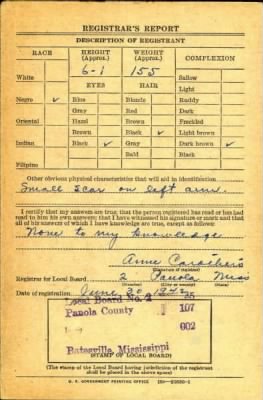 REGISTRAR'S REPORT
DESCRIPTION OF REGISTRANT
RACE
HEIGHT
(Approx.)
WEIGHT
(Approx.)
COMPLEXION
6-1
155
White
EYES
HAIR
Sallow
Light
Negro ✓
Blue
Blonde
Ruddy
Gray
Red
Dark
Oriental
Hazel
Brown
Freckled
Brown
Black ✓
Light brown
Indian
Black ✓
Gray
Dark brown ✓
Bald
Black
Filipino
Other obvious physical characteristics that will aid in identification
Small scar on left arm.
I certify that my answers are true; that the person registered has read or has had
read to him his own answers; that I have witnessed his signature or mark and that
all of his answers of which I have knowledge are true, except as follows:
None to my knowledge
Anne Carothers
(Signature of registrar)
Registrar for Local Board 2 Panola Miss
(Number) (City or county) (State)
Date of registration June 30
Local Board No. 2 25
Panola County 107
002
Batesville, Mississippi
(STAMP OF LOCAL BOARD)
(The stamp of the Local Board having jurisdiction of the registrant
shall be placed in the above space)
U. S. GOVERNMENT PRINTING OFFICE